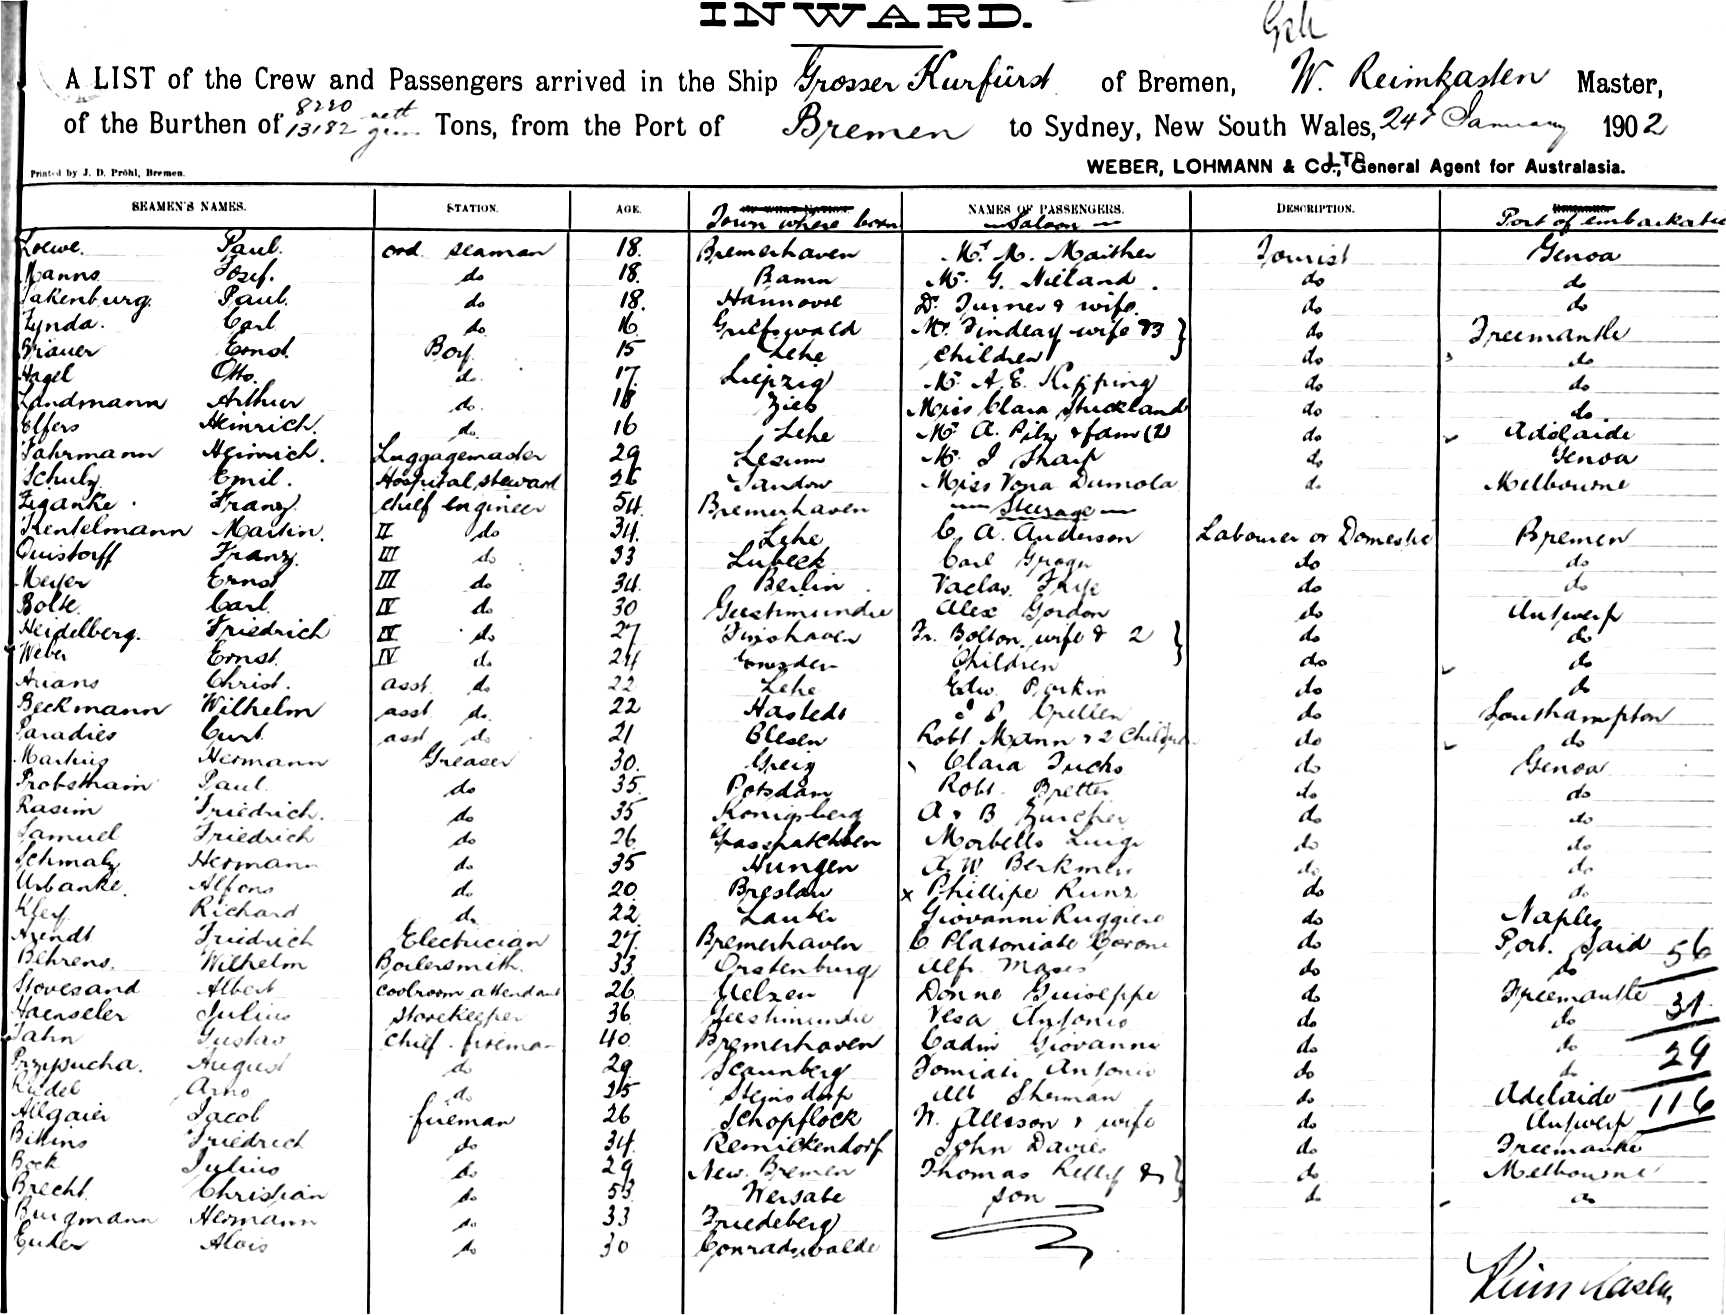 INWARD.
A LIST of the Crew and Passengers arrived in the Ship Grosser Kurfürst of Bremen, W. Reimkasten Master,
8220 nett
of the Burthen of 13182 Tons, from the Port of Bremen to Sydney, New South Wales, 24 January 1902
Printed by J. D. Pröhl, Bremen. WEBER, LOHMANN & Co., LTD General Agent for Australasia.
SEAMEN'S NAMES. STATION. AGE. Town where born NAMES OF PASSENGERS. DESCRIPTION. Port of embarkatio
Saloon
Loewe. Paul. ord. seaman 18. Bremerhaven Mr. M. Maither Tourist Genoa
Manns Josef. do 18. Bamn Mr. G. Nieland do do
Takenburg. Paul. do 18. Hannover Dr. Turner & wife. do do
Zynda. Carl do. 16 Greifswald Mr. Findlay wife & 3 } do Freemantle
Brauer Ernst. Boy. 15 Lehe Children do do
Hagel Otto. do. 17. Leipzig Mr. A. E. Kipping do do
Landmann Arthur do. 18 Zieb Miss Clara Strickland do do.
Elfers Heinrich. do. 16 Lehe Mr. A. Pilz & fam (2) do Adelaide
Fahrmann Heinrich. Luggagemaster 29 Lesum Mr. J Sharp do Genoa
Schulz Emil. Hospital steward 26 Sandow Miss Vona Dumola do Melbourne
Zganke. Franz. chief engineer 54. Bremerhaven Steerage
Kentelmann Martin. II do 34. Lehe C. A. Anderson Labourer or Domestic Bremen
Quistorff Franz. III do. 33 Lubeck Carl Gragn do do
Meyer Ernst III do 34. Berlin. Vaclav Frye do do
Bolte. Carl. IV do 30 Geestemunde Alex Gordon do Antwerp
Heidelberg. Friedrich IV do 27 Tinshaven Fr. Bolton wife & 2 } do do
Weber Ernst. IV do 24 Emsden Children do do
Arians Christ. asst. do 22 Lehe Edw. Parkin do do
Beckmann Wilhelm asst do. 22 Hastedt Cpellen do Southampton
Paradies Curt. asst do 21 Blesen Robt Mann & 2 Children do do
Martins Hermann Greaser 30. Greiz Clara Fuchs do Genoa
Probsthain Paul. do 35. Potsdam Robt. Bretter do do
Rasim Friedrich. do 35 Königsberg A & B Zurcher do do
Samuel Friedrich do 26. Gasspatchben Morbello Luigi do do
Schmalz Hermann do 35 Hungen A. W Berkmen do do
Urbanke. Alfons do 20. Breslau x Phillipe Kunz do do
Kley. Richard do 22 Lauter Giovanni Ruggiere do Naples
Arendt Friedrich Electrician 27. Bremerhaven C. Platoniate Corone do Port. Said 56
Behrens. Wilhelm Boilersmith. 33 Orstenburg Alfr. Moses do do
Stovesand Albert coolroom attendant 26 Uelzen Donne Guiseppe do Freemantle 31
Haenseler Julius Storekeeper 36 Geestemunde Vesa Antonio do do
Jahn Gustav chief. fireman 40. Bremerhaven Cadin Giovanni do do 29
Przypsucha. August do 29. Scaunberg Tomiati Antonio do do
Riedel Arno do 25 Steinsdorf Alb Sherman do Adelaide
Allgaier Jacob fireman 26 Schopflock W. Allison & wife do Antwerp 116
Bittins Friedrich do 34. Remickendorf John Davies do Freemantle
Bock Julius do 29 New. Bremen Thomas Kelly & } do Melbourne
Brecht. Christian do 53. Wersabe son do do
Burgmann Hermann do 33 Friedeberg
Euder Alois do 30 Conradswalde
Reimkasten